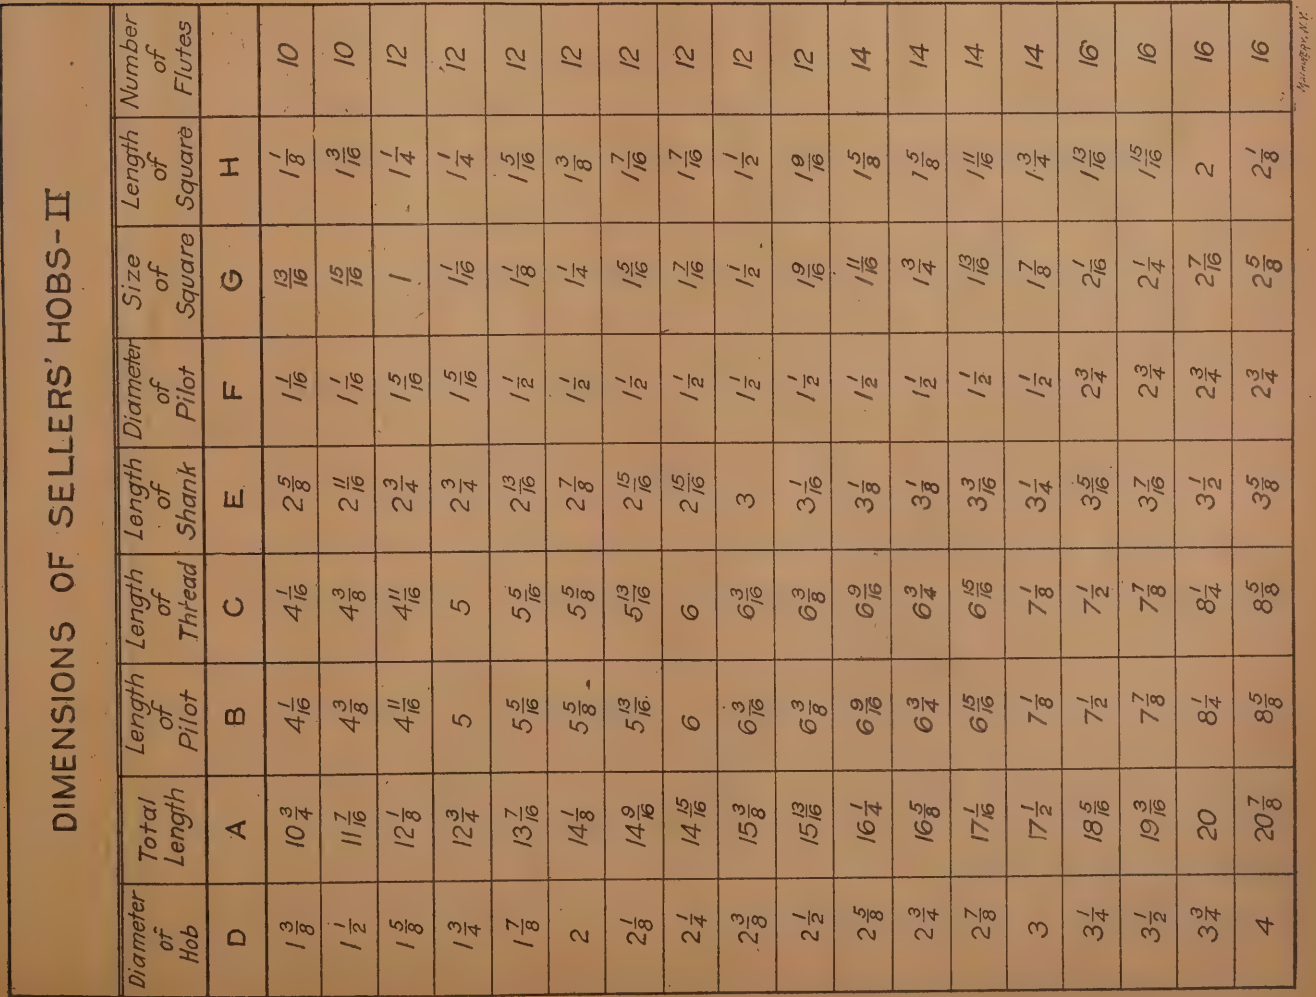 DIMENSIONS OF SELLERS' HOBS-II
Diameter of Hob | Total Length | Length of Pilot | Length of Thread | Length of Shank | Diameter of Pilot | Size of Square | Length of Square | Number of Flutes
D | A | B | C | E | F | G | H
1 3/8 | 10 3/4 | 4 1/16 | 4 1/16 | 2 5/8 | 1 1/16 | 13/16 | 1 1/8 | 10
1 1/2 | 11 7/16 | 4 3/8 | 4 3/8 | 2 11/16 | 1 1/16 | 15/16 | 1 3/16 | 10
1 5/8 | 12 1/8 | 4 11/16 | 4 11/16 | 2 3/4 | 1 5/16 | 1 | 1 1/4 | 12
1 3/4 | 12 3/4 | 5 | 5 | 2 3/4 | 1 5/16 | 1 1/16 | 1 1/4 | 12
1 7/8 | 13 7/16 | 5 5/16 | 5 5/16 | 2 13/16 | 1 1/2 | 1 1/8 | 1 5/16 | 12
2 | 14 1/8 | 5 5/8 | 5 5/8 | 2 7/8 | 1 1/2 | 1 1/4 | 1 3/8 | 12
2 1/8 | 14 9/16 | 5 13/16 | 5 13/16 | 2 15/16 | 1 1/2 | 1 5/16 | 1 7/16 | 12
2 1/4 | 14 15/16 | 6 | 6 | 2 15/16 | 1 1/2 | 1 7/16 | 1 7/16 | 12
2 3/8 | 15 3/8 | 6 3/16 | 6 3/16 | 3 | 1 1/2 | 1 1/2 | 1 1/2 | 12
2 1/2 | 15 13/16 | 6 3/8 | 6 3/8 | 3 1/16 | 1 1/2 | 1 9/16 | 1 9/16 | 12
2 5/8 | 16 1/4 | 6 9/16 | 6 9/16 | 3 1/8 | 1 1/2 | 1 11/16 | 1 5/8 | 14
2 3/4 | 16 5/8 | 6 3/4 | 6 3/4 | 3 1/8 | 1 1/2 | 1 3/4 | 1 5/8 | 14
2 7/8 | 17 1/16 | 6 15/16 | 6 15/16 | 3 3/16 | 1 1/2 | 1 13/16 | 1 11/16 | 14
3 | 17 1/2 | 7 1/8 | 7 1/8 | 3 1/4 | 1 1/2 | 1 7/8 | 1 3/4 | 14
3 1/4 | 18 5/16 | 7 1/2 | 7 1/2 | 3 5/16 | 2 3/4 | 2 1/16 | 1 13/16 | 16
3 1/2 | 19 3/16 | 7 7/8 | 7 7/8 | 3 7/16 | 2 3/4 | 2 1/4 | 1 15/16 | 16
3 3/4 | 20 | 8 1/4 | 8 1/4 | 3 1/2 | 2 3/4 | 2 7/16 | 2 | 16
4 | 20 7/8 | 8 5/8 | 8 5/8 | 3 5/8 | 2 3/4 | 2 5/8 | 2 1/8 | 16
Machinery, N.Y.